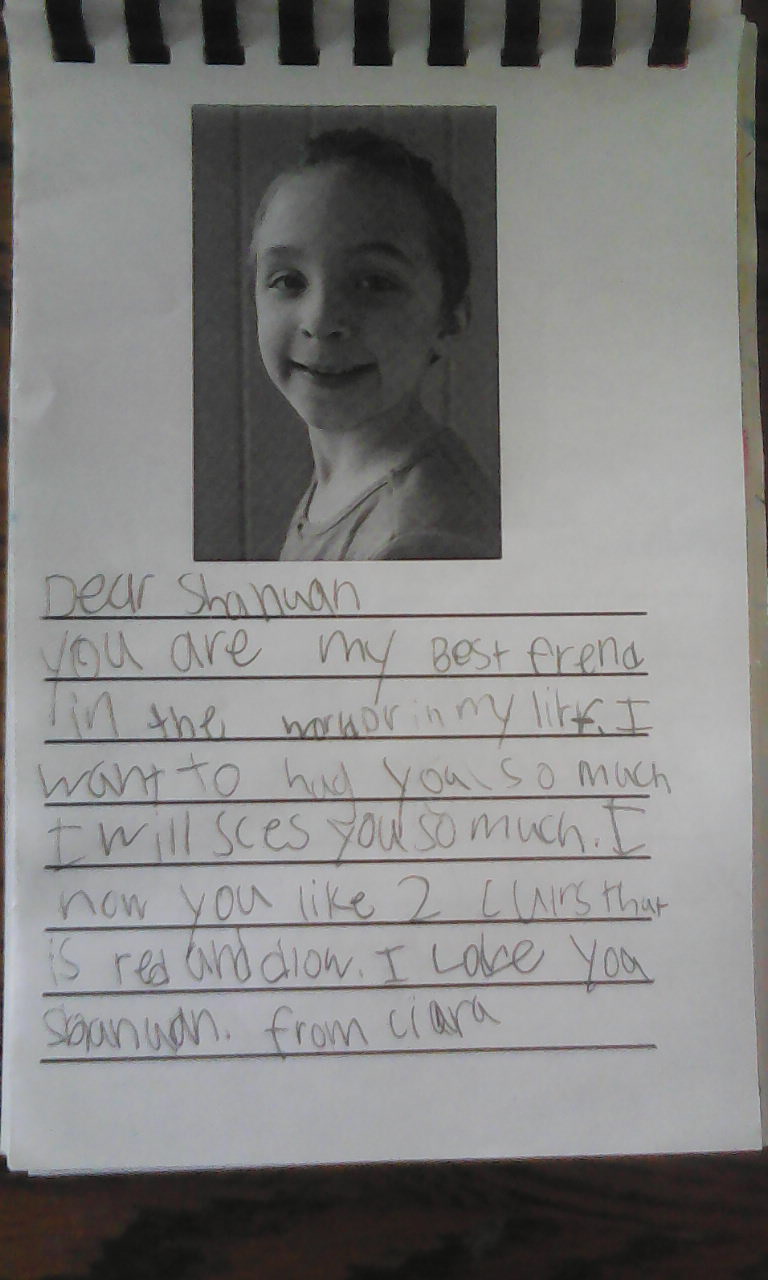 Dear Shanuan
you are my Best frend
in the in my life. I
want to hug you so much
I will sces you so much. I
now you like 2 cluirs that
is red and dlow. I Love you
Shanuan. from ciara